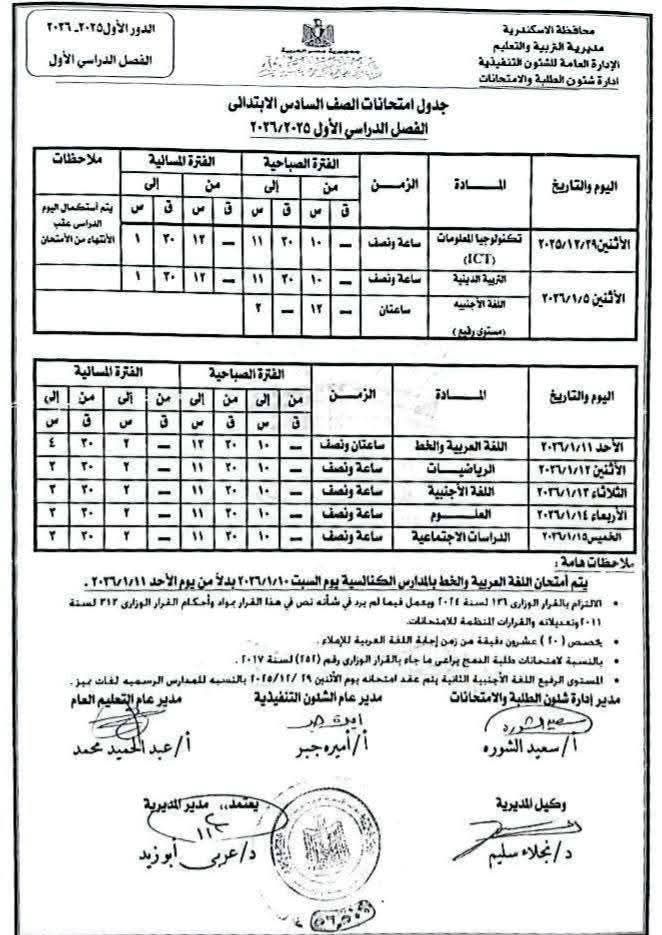 محافظة الاسكندرية
مديرية التربية والتعليم
الإدارة العامة للشئون التنفيذية
ادارة شئون الطلبة والامتحانات
الدور الأول ٢٠٢٥ـ ٢٠٢٦
الفصل الدراسي الأول
جدول امتحانات الصف السادس الابتدائى
الفصل الدراسي الأول ٢٠٢٦/٢٠٢٥
اليوم والتاريخ المـــادة الزمـــن الفترة الصباحية الفترة المسائية ملاحظات
من إلى من إلى
ق س ق س ق س ق س
الأثنين ٢٠٢٥/١٢/٢٩ تكنولوجيا المعلومات (ICT) ساعة ونصف ـــ ١٠ ٣٠ ١١ ـــ ١٢ ٣٠ ١ يتم أستكمال اليوم الدراسى عقب الأنتهاء من الأمتحان
الأثنين ٢٠٢٦/١/٥ التربية الدينية ساعة ونصف ـــ ١٠ ٣٠ ١١ ـــ ١٢ ٣٠ ١
اللغة الأجنبيه (مستوى رفيع) ساعتان ـــ ١٢ ـــ ٢
اليوم والتاريخ المـــادة الزمـــن الفترة الصباحية الفترة المسائية
من إلى من إلى
ق س ق س ق س ق س
الأحد ٢٠٢٦/١/١١ اللغة العربية والخط ساعتان ونصف ـــ ١٠ ٣٠ ١٢ ـــ ٢ ٣٠ ٤
الأثنين ٢٠٢٦/١/١٢ الرياضيـــات ساعة ونصف ـــ ١٠ ٣٠ ١١ ـــ ٢ ٣٠ ٣
الثلاثاء ٢٠٢٦/١/١٣ اللغة الأجنبية ساعة ونصف ـــ ١٠ ٣٠ ١١ ـــ ٢ ٣٠ ٣
الأربعاء ٢٠٢٦/١/١٤ العلـــوم ساعة ونصف ـــ ١٠ ٣٠ ١١ ـــ ٢ ٣٠ ٣
الخميس ٢٠٢٦/١/١٥ الدراسات الاجتماعية ساعة ونصف ـــ ١٠ ٣٠ ١١ ـــ ٢ ٣٠ ٣
ملاحظات هامة :
يتم أمتحان اللغة العربية والخط بالمدارس الكنائسية يوم السبت ٢٠٢٦/١/١٠ بدلاً من يوم الأحد ٢٠٢٦/١/١١ .
• الالتزام بالقرار الوزارى ١٣٦ لسنة ٢٠٢٤ ويعمل فيما لم يرد في شأنه نص في هذا القرار بمواد وأحكام القرار الوزارى ٣١٣ لسنة
٢٠١١ وتعديلاته والقرارات المنظمة للامتحانات.
• يخصص (٢٠) عشرون دقيقة من زمن إجابة اللغة العربية للإملاء .
• بالنسبة لامتحانات طلبة الدمج يراعى ما جاء بالقرار الوزارى رقم (٢٥٢) لسنة ٢٠١٧ .
• المستوى الرفيع اللغة الأجنبية الثانية يتم عقد امتحانه يوم الأثنين ٢٩ /١٢ /٢٠٢٥ بالنسبه للمدارس الرسميه لغات تميز .
مدير إدارة شئون الطلبة والامتحانات مدير عام الشئون التنفيذية مدير عام التعليم العام
سعيد الشوره أميرة جبر
أ/ سعيد الشوره أ/ أميره جبر أ/ عبد الحميد محمد
وكيل المديرية يعتمد،، مدير المديرية
د/ نجلاء سليم د/ عربى أبو زيد